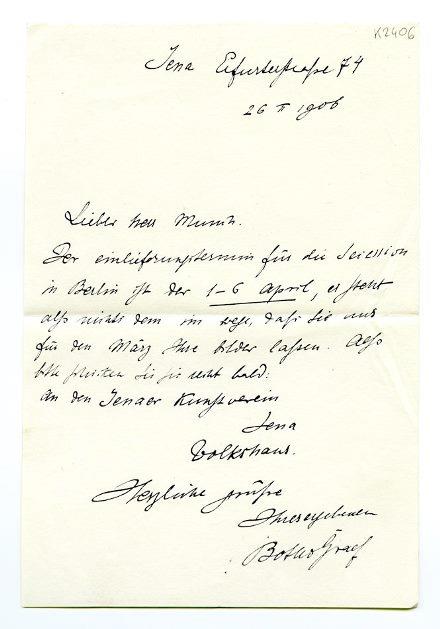 K2406
Jena Erfurterstraße 74
26 II 1906
Lieber Herr Munch.
Der einlieferungstermin für die Secession
in Berlin ist der 1-6 April, es steht
alſo nichts dem im wege, daß Sie uns
für den März Ihre bilder laſſen. Alſo
bitte ſchicken Sie ſie recht bald:
an den Jenaer Kunſtverein
Jena
Volkshaus.
Herzliche grüße
Ihr ergebener
Botho Graef